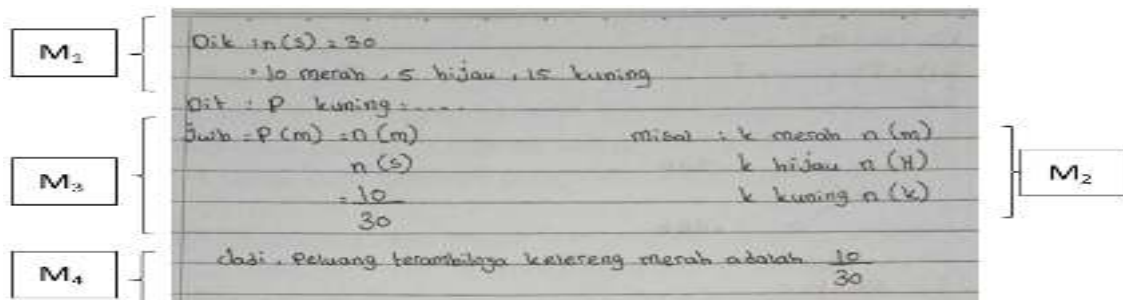 M₁
Dik : n(s) = 30
= 10 merah, 5 hijau, 15 kuning
Dit : P kuning = ....
M₃
Jwb = P(m) = n(m)
n(s)
= 10
30
misal : k merah n(m)
k hijau n(H)
k kuning n(k)
M₂
M₄
Jadi, Peluang terambilnya kelereng merah adalah 10
30